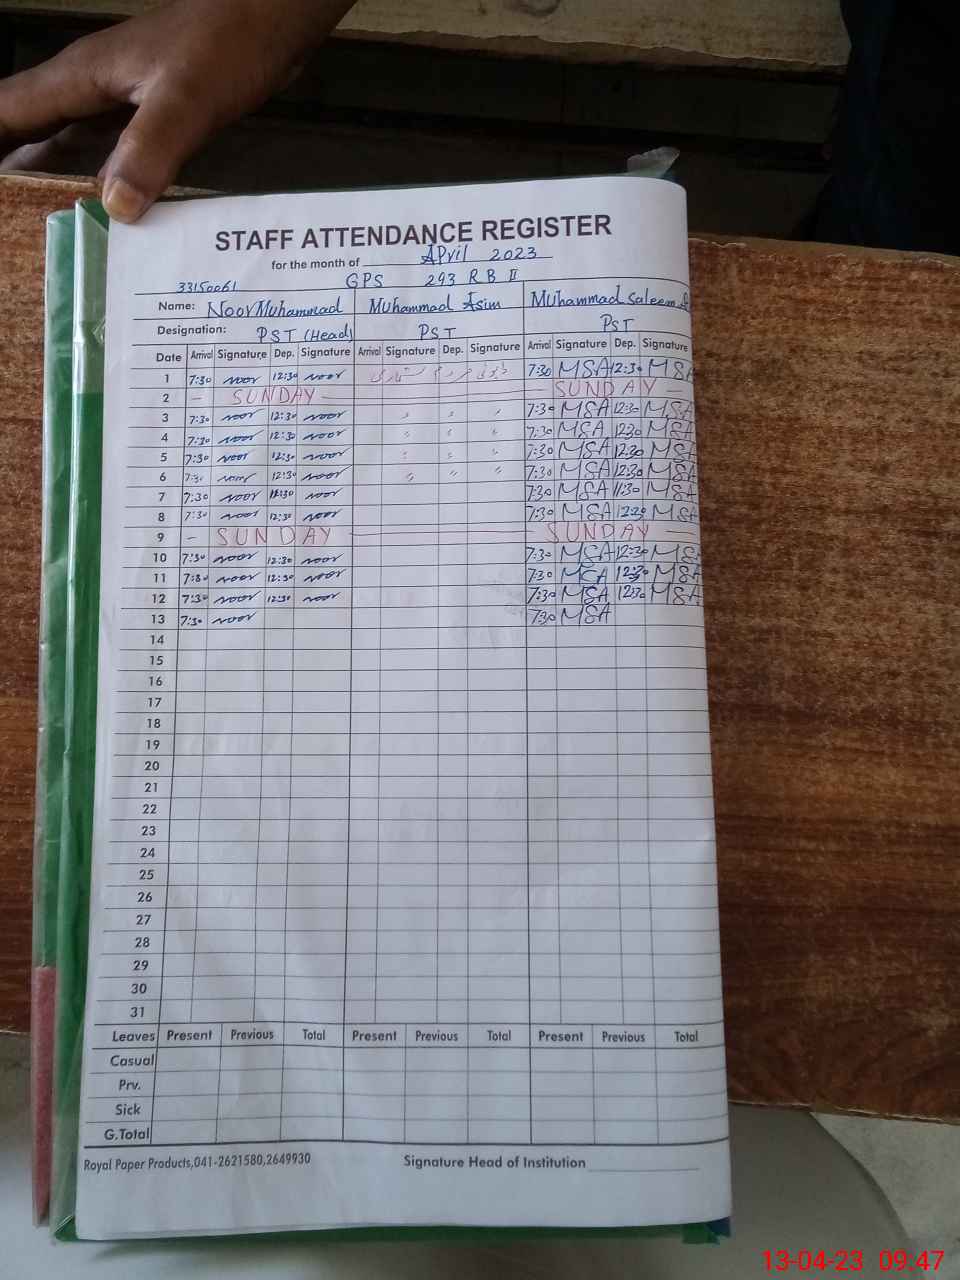 STAFF ATTENDANCE REGISTER
for the month of April 2023
33150061 GPS 293 RB II
Name: Noor Muhammad Muhammad Asim Muhammad Saleem
Designation: PST (Head) PST PST
Date Arrival Signature Dep. Signature Arrival Signature Dep. Signature Arrival Signature Dep. Signature
1 7:30 noor 12:30 noor 7:30 MSA 12:30 MSA
2 – SUNDAY – SUNDAY –
3 7:30 noor 12:30 noor " " " 7:30 MSA 12:30 MSA
4 7:30 noor 12:30 noor " " " 7:30 MSA 12:30 MSA
5 7:30 noor 12:30 noor " " " 7:30 MSA 12:30 MSA
6 7:30 noor 12:30 noor " " " 7:30 MSA 12:30 MSA
7 7:30 noor 11:30 noor 7:30 MSA 11:30 MSA
8 7:30 noor 12:30 noor 7:30 MSA 12:30 MSA
9 – SUNDAY – SUNDAY –
10 7:30 noor 12:30 noor 7:30 MSA 12:30 MS
11 7:30 noor 12:30 noor 7:30 MSA 12:30 MSA
12 7:30 noor 12:30 noor 7:30 MSA 12:30 MSA
13 7:30 noor 7:30 MSA
14
15
16
17
18
19
20
21
22
23
24
25
26
27
28
29
30
31
Leaves Present Previous Total Present Previous Total Present Previous Total
Casual
Prv.
Sick
G.Total
Royal Paper Products,041-2621580,2649930 Signature Head of Institution
13-04-23 09.47